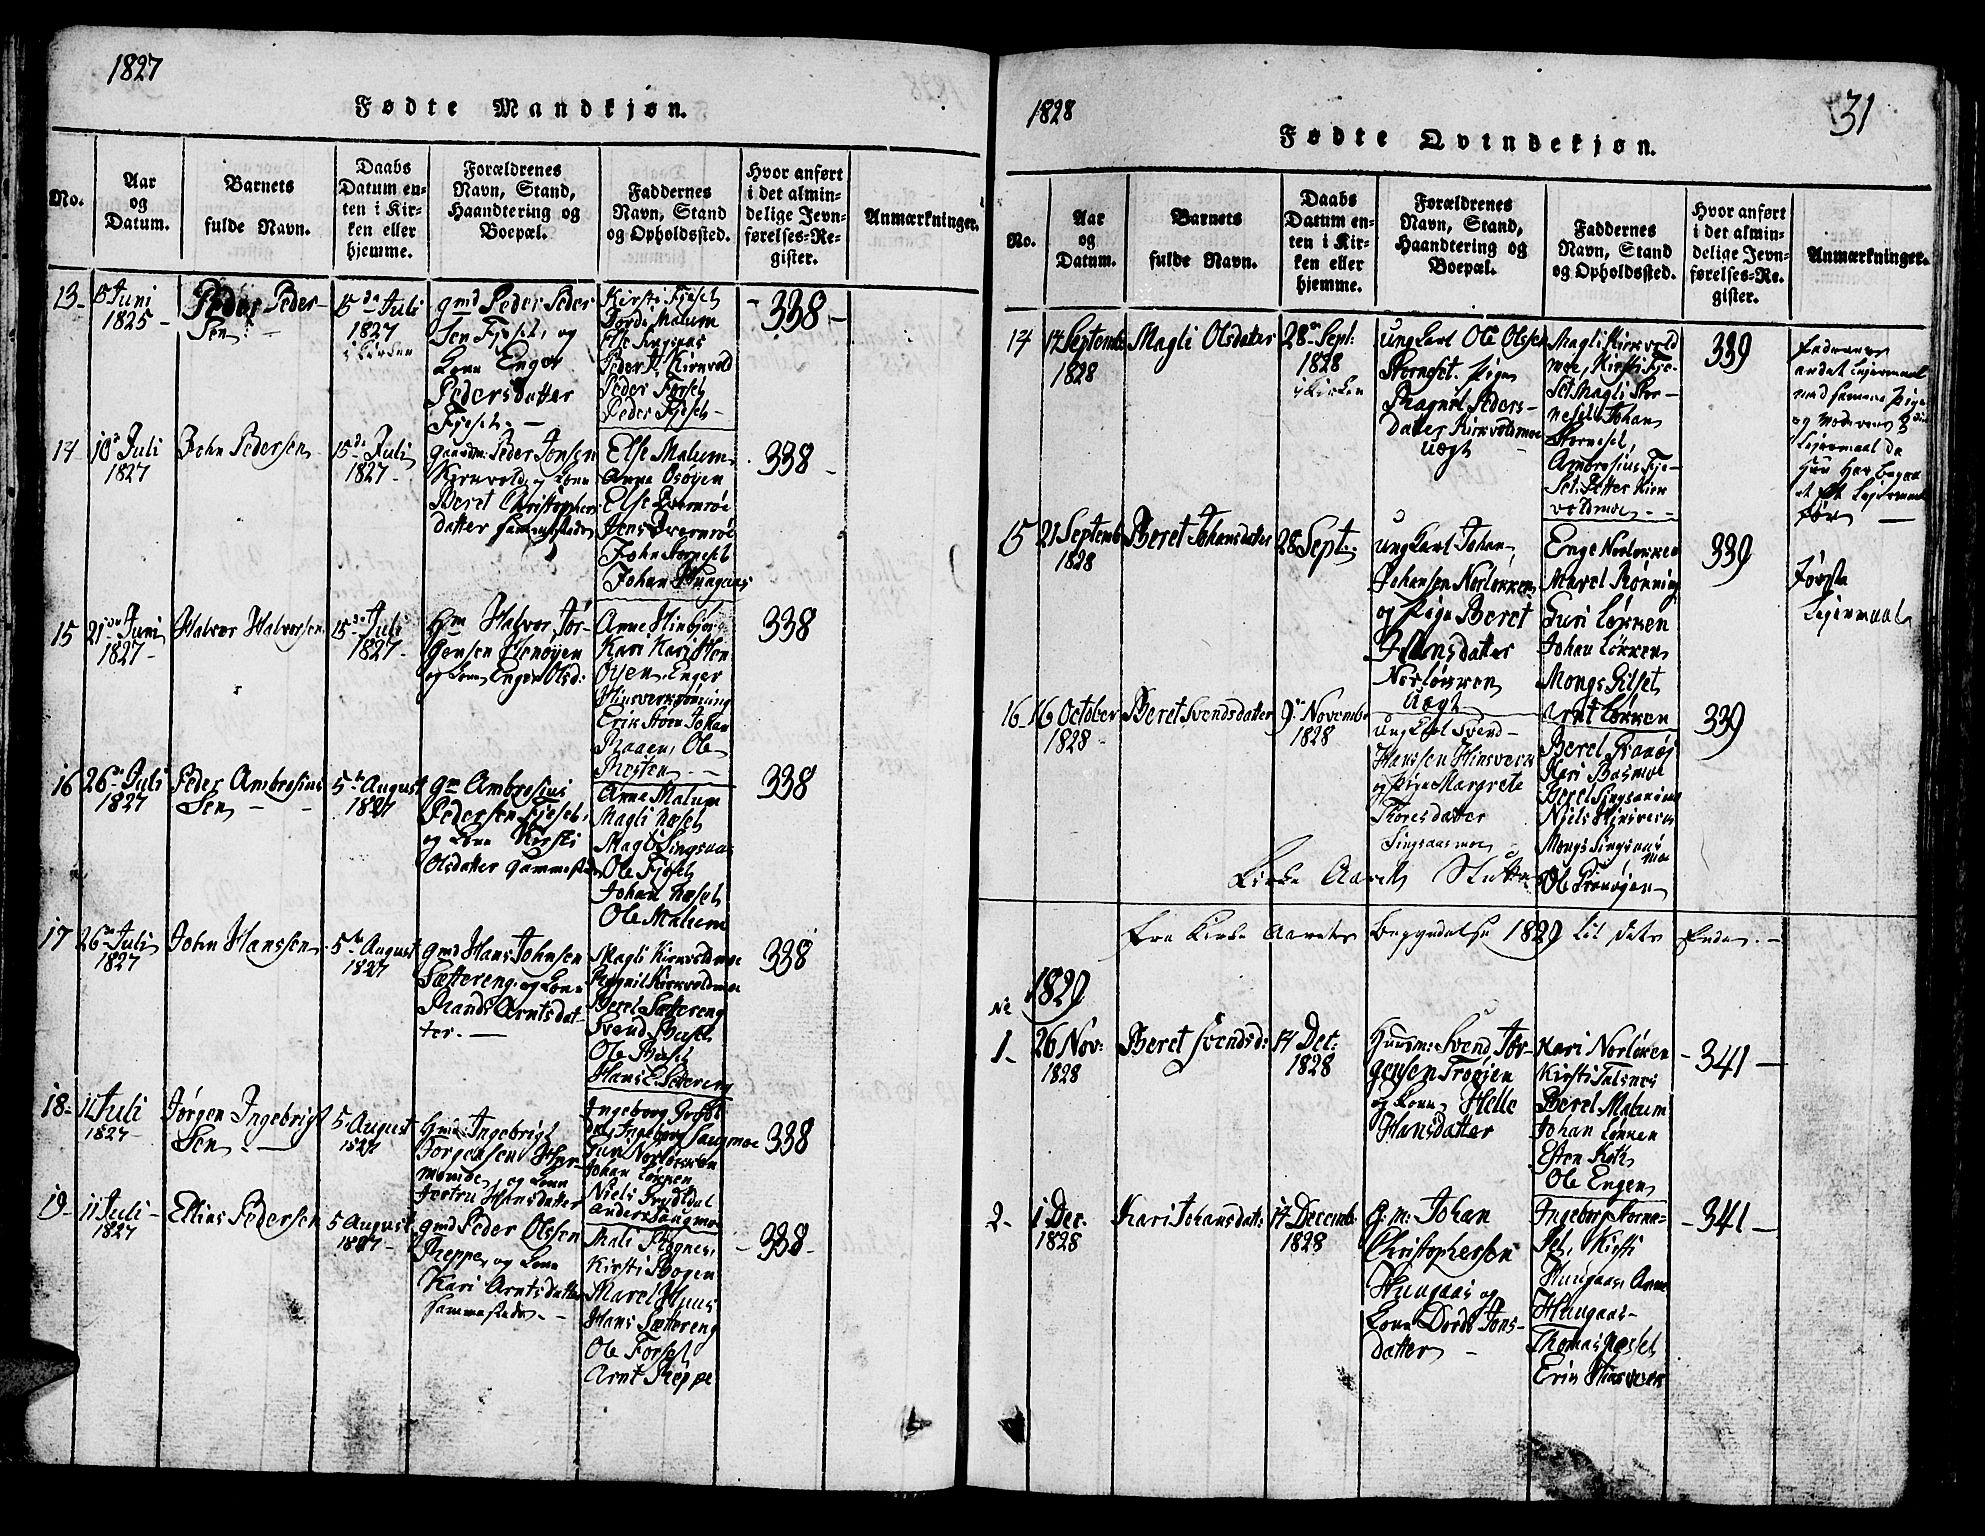 1827
Fødte Mandkjøn.
No.
Aar
og
Datum.
Barnets
fulde Navn.
Daabs
Datum en-
ten i Kir-
ken eller
hjemme.
Forældrenes
Navn, Stand,
Haandtering og
Boepæl.
Faddernes
Navn, Stand
og Opholdssted.
Hvor anført
i det almin-
delige Jevn-
førelses-Re-
gister.
Anmærkninger.
13-
Juni
1825 -
Peder Peder-
sen.
15de Juli
1827
i Kirken
gmd Peder Peder
sen Fjeset, og
Kone Enger
Pedersdatter
Fjeset. -
Kirsti Fjeset
Dordi Malum
Peder H. Kirnvold
Peder Forset
Peder Fjeset -
- 338 -
14
10de Juli
1827
John Pedersen
15de Juli
1827 -
Peder Jonsen
Kirnvold, og Kone
Beret Christophers
datter sammesteds
Else Malum.
Anna Osøyen
Else
Jens
John Storneset
Johan Haugaas
338 -
15
21de Juni
1827 -
Halvor Halvorsen
15de Juli
1827 -
Hm Halvor Jør-
gensen
og Kone Enger Olsd:
Anne
Kari
Enger
Erik Støen Johan
Ole
338
16
26de Juli
1827
Peder Ambrosius
sen - -
5te August
1827
gm Ambrosius
Pedersen Fjeset,
og Kone Kirsti
Olsdatter sammesteds
Anne Malum
Magli Næset
Magli Singsaas
Ole Fjeset
Johan Næset
Ole Malum
338
17
26de Juli
1827
John Hanssen
5te August
1827
gmd Hans Johnsen
Sættereng og Kone
Randi Arntsdat-
ter. -
Magli Kirnvoldmoe
Ragnil Kirkvoldmoe
Beret Sættereng
Svend
Ole
Hans
338
18-
11 Juli
1827 -
Jørgen Ingebrigt
sen -
5 August
1827
Hmd Ingebrigt
Jørgensen
og Kone
Hansdatter
Ingeborg
Ingeborg Haugmoe
Guri Norløkken
Johan Løkken
Niels
Anders Haugmoe
338
19-
11 Juli -
1827
Ellius Pedersen
5 August
1827 -
gmd Peder Olssen
Reppe, og Kone
Kari Arntsdatter
sammesteds. -
Mali
Kirsti Bogen
Maret
Hans Sættereng
Ole Forset
Arnt Reppe
- 338 -
1828
31
Fødte Qvindekjøn.
No.
Aar
og
Datum.
Barnets
fulde Navn.
Daabs
Datum en-
ten i Kir-
ken eller
hjemme.
Forældrenes
Navn, Stand,
Haandtering og
Boepæl.
Faddernes
Navn, Stand
og Opholdssted.
Hvor anført
i det almin-
delige Jevn-
førelses-Re-
gister.
Anmærkninger.
14
14 Septemb
1828
Magli Olsdatter
28de Sept:
1828
i Kirken
ungkarl Ole Olsen
Storneset. Pige
Ragnel Peders-
datter Kirkvoldmoe
uægt
Magli Kirkvold
moe, Kirsti Fje-
set Magli Stor-
neset Johan
Storneset,
Ambrosius Fje-
set. Petter Kirk
voldmoe - -
339
andet Leiermaal
med samme Pige
og Moderens 3die
Leiermaal da
Hun har begaa
et Leiermaal
før -
15
21 Septemb
1828
Beret Johansdatter
28 Sept.
ungkarl Johan
Johansen Norløkken
og Pige Beret
Hansdatter
Norløkken
uægt
Enge Norløkken
Maret Rønning
Guri Løkken
Johan Løkken
Mongs Gilset
Arnt Løkken
339
Første
Leiermaal
16
16 October
1828
Beret Svendsdatter
9de Novemb
1828
ungkarl Svend
Hanssen
og Pige Margrete
Thoresdatter
Singsaasmoe
Beret
Kari Basmoe
Beret Singsaasmoe
Niels
Mongs Singsaas
moe
Ole
339
Kirke Aarets Slutte
Fra Kirke Aarets Begyndelse 1829 til dets Ende. -
No
1829
1-
26 Nov:
1828
Beret Svendsd:
14 Det:
1828
Huusm: Svend Jør-
gensen Trøøien
og Kone Helle
Hansdatter
Kari Norløken
Kirsti Talsnes
Beret Malum
Johan Løkken
Esten Kotk
Ole Engen
- 341 -
2-
1 Dec.
1828
Kari Johansdatt:
14 Decemb.
1828
G: m: Johan
Christophersen
Haugaas og
Kone Dordi Jons-
datter -
Ingeborg Storne-
set, Kirsti
Haugaas Anne
Haugaas-
Thomas Næset
Erik
- 341 -